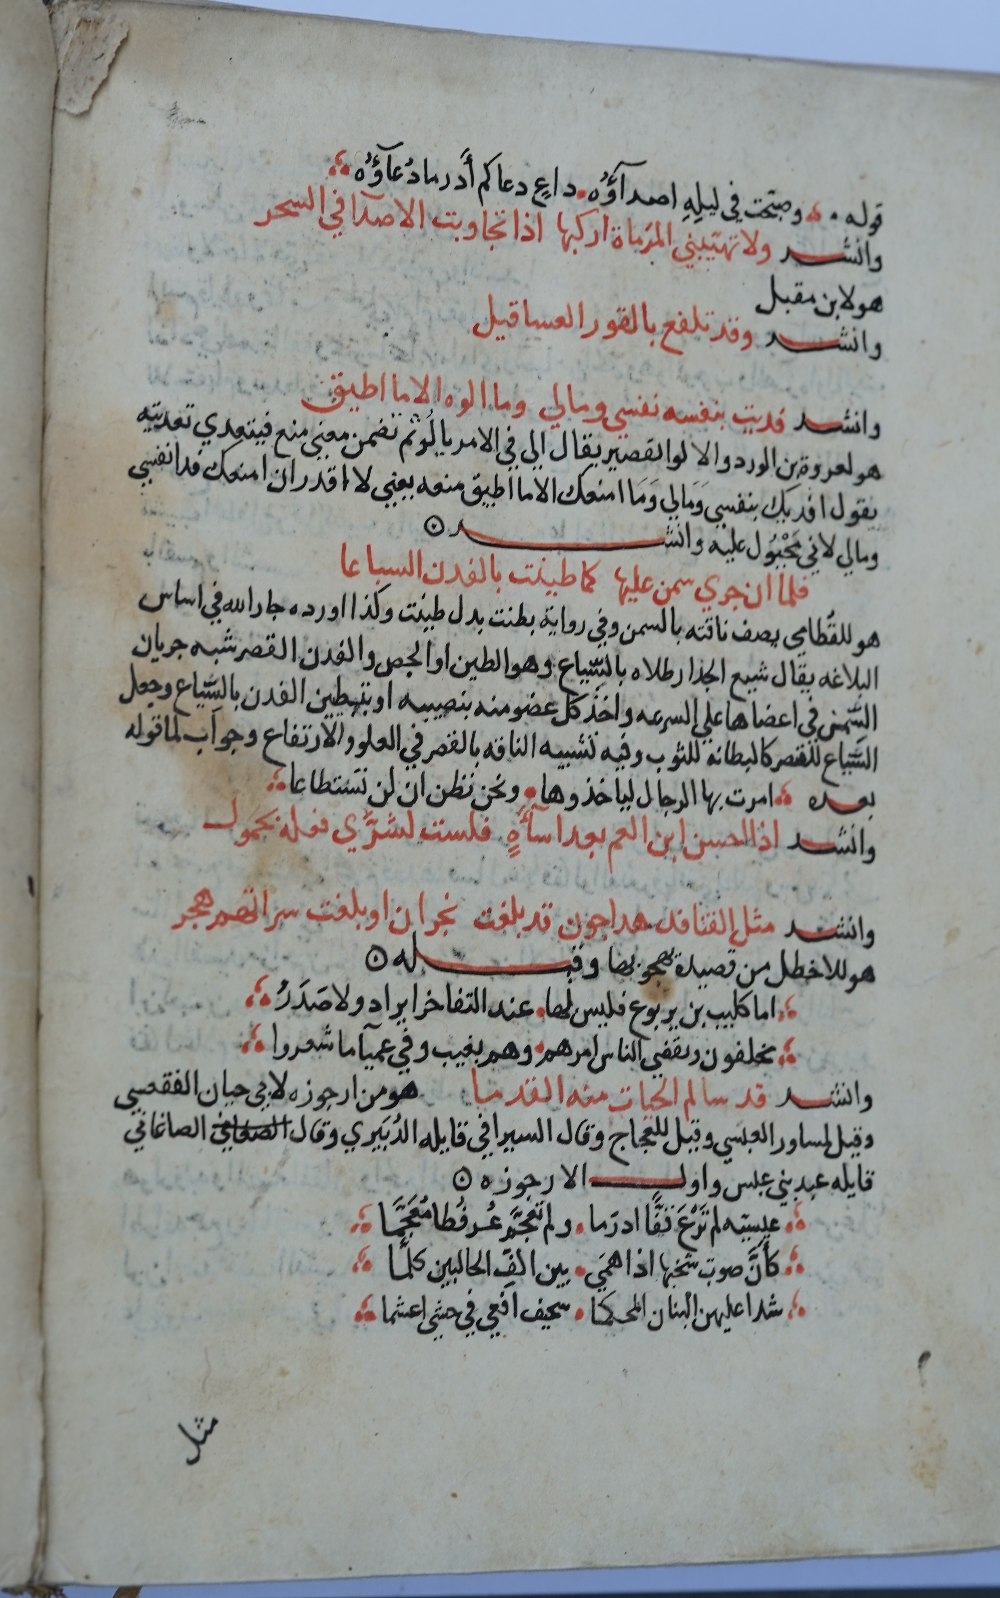 قوله • وصيحت في ليله اصداؤه • داع دعاكم أدر ما دعاؤه
وانشد ولا تهيبني المرماة اركبها اذا تجاوبت الاصدا في السحر
هو لابن مقبل
وانشد وقد تلفع بالقور العساقيل
وانشد فديت بنفسه نفسي ومالي وما الوه الا ما اطيق
هو لعروة بن الورد والالو التقصير يقال الي في الامر يالو ثم تضمن معنى منع فيتعدي تعديته
يقول افديك بنفسي ومالي وما امنعك الا ما اطيق منعه يعني لا اقدر ان امنعك فدا نفسي
ومالي لاني مجبول عليه وانشد
فلما ان جري سمن عليها كما طينت بالفدن السياعا
هو للقطامي يصف ناقته بالسمن وفي رواية بطنت بدل طينت وكذا اورده جار الله في اساس
البلاغه يقال شيع الجدار طلاه بالسياع وهو الطين او الجص والفدن القصر شبه جريان
السمن في اعضاها علي السرعه واخذ كل عضو منه بنصيبه او بتبطين الفدن بالسياع وجعل
السياع للقصر كالبطانه للثوب وفيه تشبيه الناقه بالقصر في العلو والارتفاع وجواب لما قوله
بعده امرت بها الرجال لياخذوها • ونحن نظن ان لن تستطاعا
وانشد اذا احسن ابن العم بعد اسأة فلست لشري فعله بحمول
وانشد مثل القنافذ هداجون قد بلغت نجران او بلغت سواتهم هجر
هو للاخطل من قصيدة يهجو بها وقبله
اما كليب بن يربوع فليس لها • عند التفاخر ايراد ولا صدر
مخلفون ويقضي الناس امرهم • وهم بغيب وفي عميا ما شعروا
وانشد قد سالم الحيات منه القدما هو من ارجوزه لابي حيان الفقعسي
وقيل لمساور العبسي وقيل للعجاج وقال السيرافي قايله الدبيري وقال الصغاني الصاغاني
قايله عبد بني عبس واول الارجوزه
عبسيه لم ترع قفا ادرما • ولم تعجم عرفطا معجما
كأن صوت شخبها اذا همي • بين اكف الحالبين كلما
شدا عليهن البنان المحكما • سحيف افعي في خشي اعشما
مثل